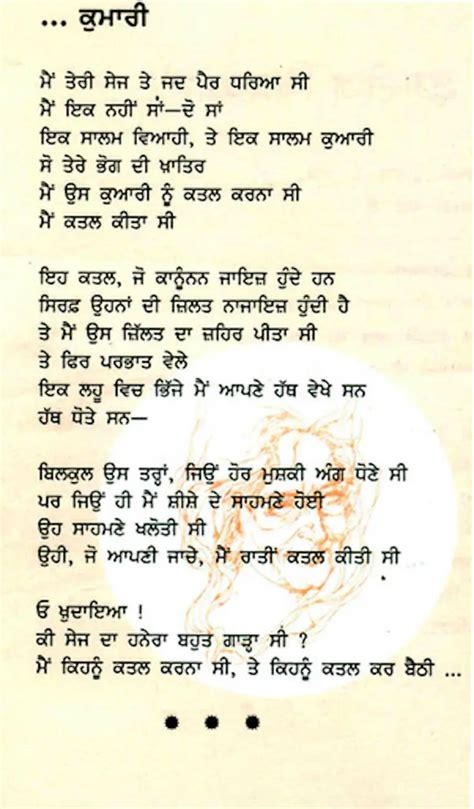 ... ਕੁਮਾਰੀ
ਮੈਂ ਤੇਰੀ ਸੇਜ ਤੇ ਜਦ ਪੈਰ ਧਰਿਆ ਸੀ
ਮੈਂ ਇਕ ਨਹੀਂ ਸਾਂ—ਦੋ ਸਾਂ
ਇਕ ਸਾਲਮ ਵਿਆਹੀ, ਤੇ ਇਕ ਸਾਲਮ ਕੁਆਰੀ
ਸੋ ਤੇਰੇ ਭੋਗ ਦੀ ਖ਼ਾਤਿਰ
ਮੈਂ ਉਸ ਕੁਆਰੀ ਨੂੰ ਕਤਲ ਕਰਨਾ ਸੀ
ਮੈਂ ਕਤਲ ਕੀਤਾ ਸੀ
ਇਹ ਕਤਲ, ਜੋ ਕਾਨੂੰਨਨ ਜਾਇਜ਼ ਹੁੰਦੇ ਹਨ
ਸਿਰਫ਼ ਉਹਨਾਂ ਦੀ ਜ਼ਿਲਤ ਨਾਜਾਇਜ਼ ਹੁੰਦੀ ਹੈ
ਤੇ ਮੈਂ ਉਸ ਜ਼ਿੱਲਤ ਦਾ ਜ਼ਹਿਰ ਪੀਤਾ ਸੀ
ਤੇ ਫਿਰ ਪਰਭਾਤ ਵੇਲੇ
ਇਕ ਲਹੂ ਵਿਚ ਭਿੱਜੇ ਮੈਂ ਆਪਣੇ ਹੱਥ ਵੇਖੇ ਸਨ
ਹੱਥ ਧੋਤੇ ਸਨ—
ਬਿਲਕੁਲ ਉਸ ਤਰ੍ਹਾਂ, ਜਿਉਂ ਹੋਰ ਮੁਸ਼ਕੀ ਅੰਗ ਧੋਣੇ ਸੀ
ਪਰ ਜਿਉਂ ਹੀ ਮੈਂ ਸ਼ੀਸ਼ੇ ਦੇ ਸਾਹਮਣੇ ਹੋਈ
ਉਹ ਸਾਹਮਣੇ ਖਲੋਤੀ ਸੀ
ਉਹੀ, ਜੋ ਆਪਣੀ ਜਾਚੇ, ਮੈਂ ਰਾਤੀਂ ਕਤਲ ਕੀਤੀ ਸੀ
ਓ ਖ਼ੁਦਾਇਆ !
ਕੀ ਸੇਜ ਦਾ ਹਨੇਰਾ ਬਹੁਤ ਗਾੜ੍ਹਾ ਸੀ ?
ਮੈਂ ਕਿਹਨੂੰ ਕਤਲ ਕਰਨਾ ਸੀ, ਤੇ ਕਿਹਨੂੰ ਕਤਲ ਕਰ ਬੈਠੀ ...